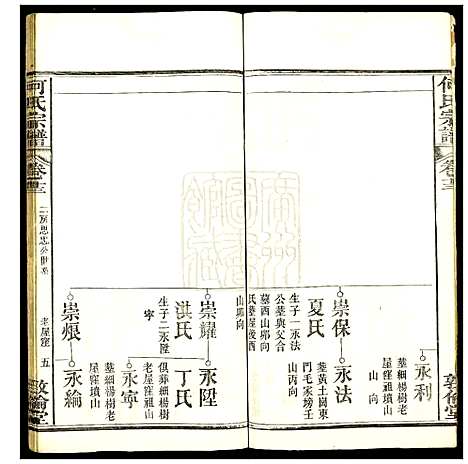 何氏宗譜
卷之三
敦倫堂
永利
墓細楊樹老
屋窪祖山
山向
崇保
永法
墓黃土岡東
門毛家塝壬
山丙向
夏氏
生子一永法
公墓與父合
墓酉山卯向
氏墓屋後酉
山卯向
崇耀
永陞
洪氏
丁氏
生子二永陞
寧
俱葬細楊樹
老屋窪祖山
永寧
墓細楊樹老
屋窪墳山
崇烺
永綸
何氏宗譜
卷之三
二房思忠公世系
老屋窪
五
敦倫堂